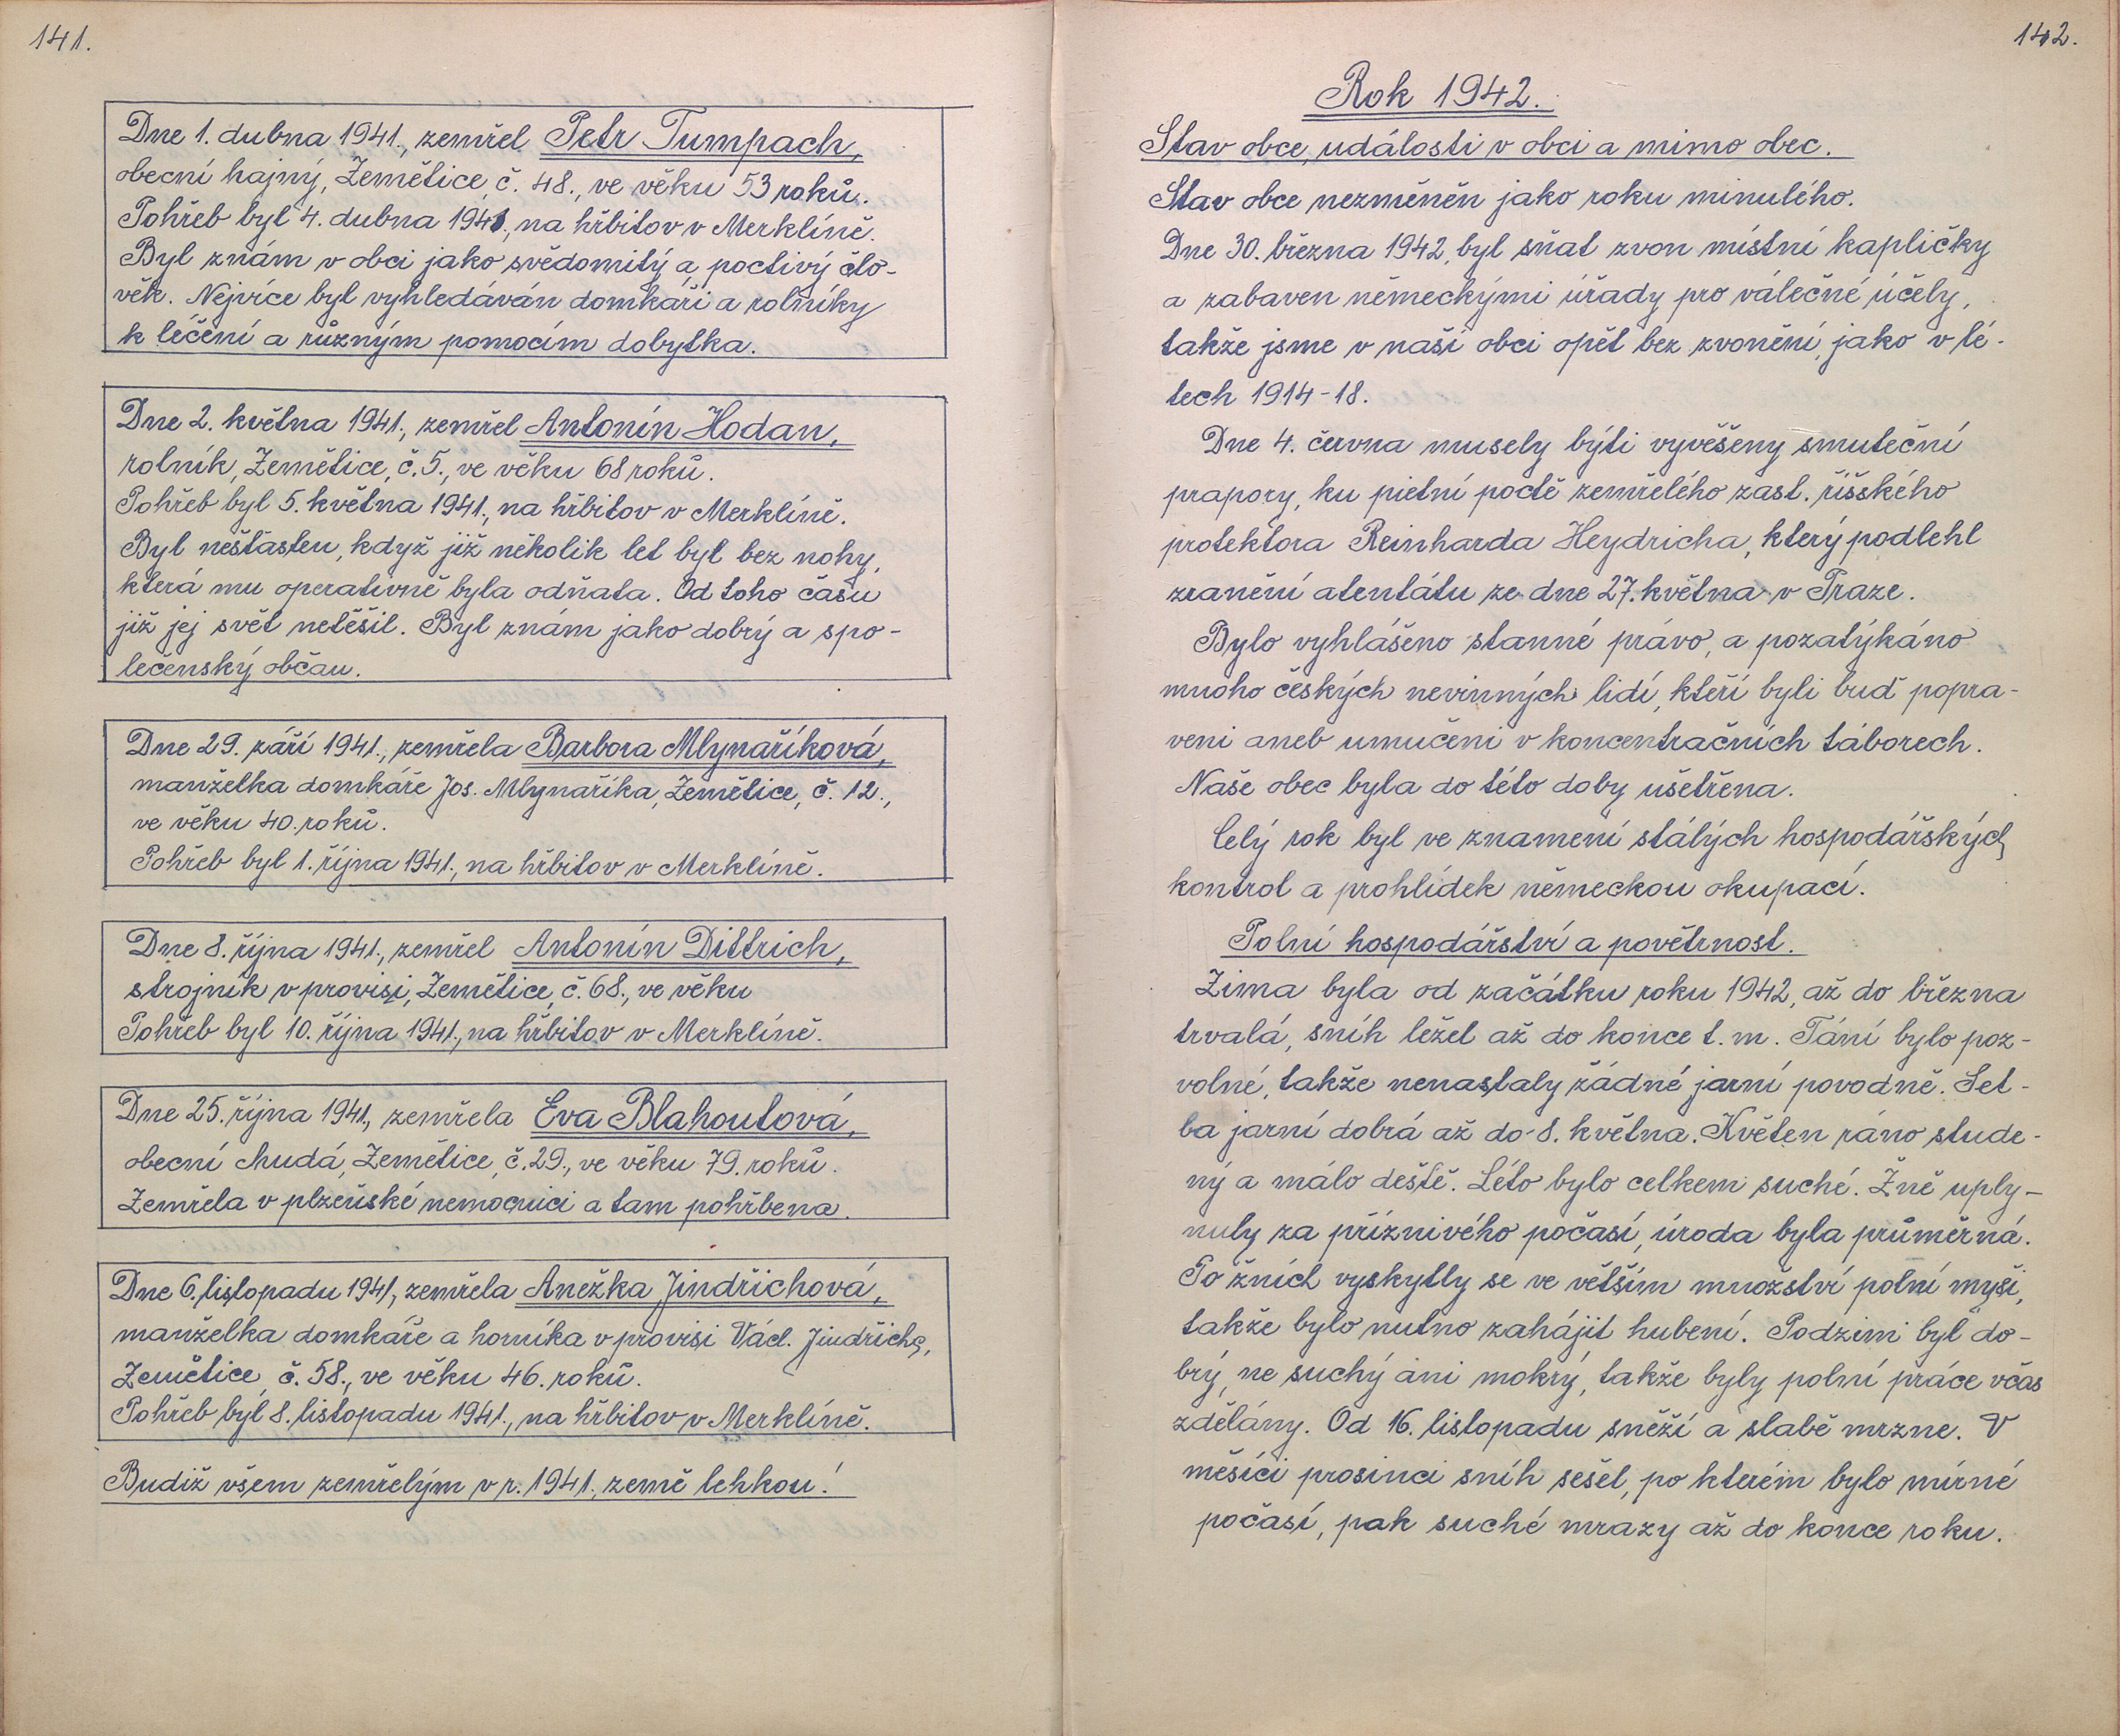 141.
Dne 1. dubna 1941., zemřel Petr Tumpach,
obecní hajný, Zemětice, č. 48., ve věku 53 roků.
Pohřeb byl 4. dubna 1941., na hřbitov v Merklíně.
Byl znám v obci jako svědomitý a poctivý člo-
věk. Nejvíce byl vyhledáván domkáři a rolníky
k léčení a různým pomocím dobytka.
Dne 2. května 1941., zemřel Antonín Hodan,
rolník, Zemětice, č. 5., ve věku 68 roků.
Pohřeb byl 5. května 1941., na hřbitov v Merklíně.
Byl nešťasten, když již několik let byl bez nohy,
která mu operativně byla odňata. Od toho času
již jej svět netěšil. Byl znám jako dobrý a spo-
lečenský občan.
Dne 29. září 1941., zemřela Barbora Mlynaříková,
manželka domkáře Jos. Mlynaříka, Zemětice, č. 12.,
ve věku 40. roků.
Pohřeb byl 1. října 1941., na hřbitov v Merklíně.
Dne 8. října 1941., zemřel Antonín Dittrich,
strojník v provisi, Zemětice, č. 68., ve věku
Pohřeb byl 10. října 1941., na hřbitov v Merklíně.
Dne 25. října 1941., zemřela Eva Blahoutová,
obecní chudá, Zemětice, č. 29., ve věku 79. roků.
Zemřela v plzeňské nemocnici a tam pohřbena.
Dne 6. listopadu 1941, zemřela Anežka Jindřichová,
manželka domkáře a horníka v provisi Václ. Jindřicha,
Zemětice, č. 58., ve věku 46. roků.
Pohřeb byl 8. listopadu 1941., na hřbitov v Merklíně.
Budiž všem zemřelým v r. 1941., země lehkou!
142.
Rok 1942.
Stav obce, události v obci a mimo obec.
Stav obce nezměněn jako roku minulého.
Dne 30. března 1942, byl sňat zvon místní kapličky
a zabaven německými úřady pro válečné účely,
takže jsme v naší obci opět bez zvonění, jako v lé-
tech 1914-18.
Dne 4. června musely býti vyvěšeny smuteční
prapory, ku pietní poctě zemřelého zast. říšského
protektora Reinharda Heydricha, který podlehl
zranění atentátu ze dne 27. května v Praze.
Bylo vyhlášeno stanné právo, a pozatýkáno
mnoho českých nevinných lidí, kteří byli buď popra-
veni aneb umučeni v koncentračních táborech.
Naše obec byla do této doby ušetřena.
Celý rok byl ve znamení stálých hospodářských
kontrol a prohlídek německou okupací.
Polní hospodářství a povětrnost.
Zima byla od začátku roku 1942, až do března
trvalá, sníh ležel až do konce t. m. Tání bylo poz-
volné, takže nenastaly žádné jarní povodně. Set-
ba jarní dobrá až do 8. května. Květen ráno stude-
ný a málo deště. Léto bylo celkem suché. Žně uply-
nuly za příznivého počasí, úroda byla průměrná.
Po žních vyskytly se ve větším množství polní myši,
takže bylo nutno zahájit hubení. Podzim byl do-
brý, ne suchý ani mokrý, takže byly polní práce včas
zdělány. Od 16. listopadu sněží a slabě mrzne. V
měsíci prosinci sníh sešel, po kterém bylo mírné
počasí, pak suché mrazy až do konce roku.